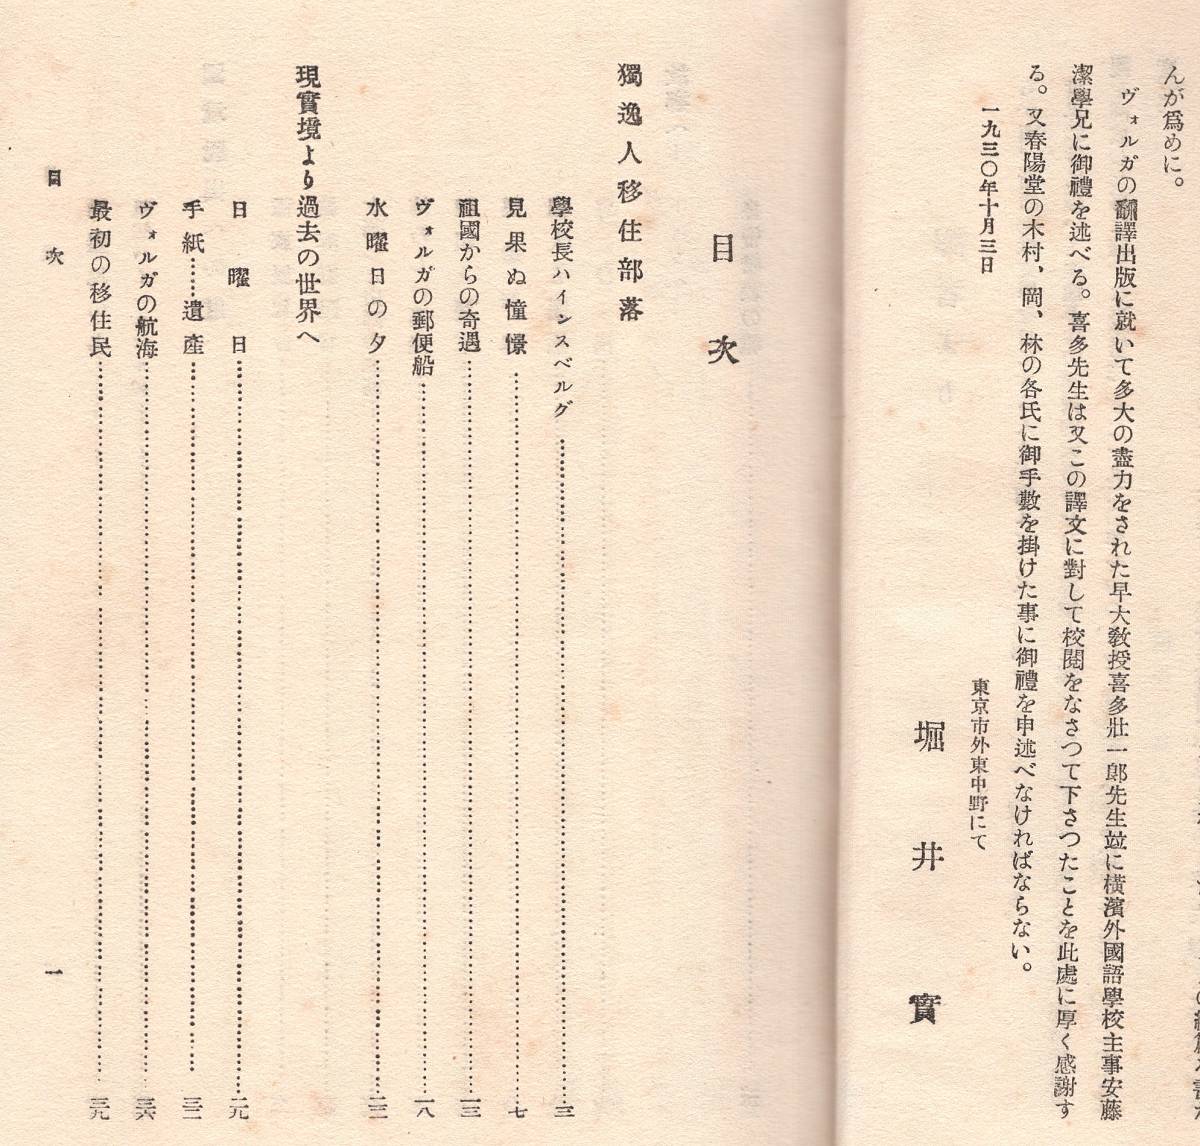 んが爲めに。
ヴォルガの飜譯出版に就いて多大の盡力をされた早大敎授喜多壯一郞先生竝に橫濱外國語學校主事安藤
潔學兄に御禮を述べる。喜多先生は又この譯文に對して校閱をなさつて下さつたことを此處に厚く感謝す
る。又春陽堂の木村、岡、林の各氏に御手數を掛けた事に御禮を申述べなければならない。
一九三〇年十月三日
東京市外東中野にて
堀井實
目次
獨逸人移住部落
學校長ハインスベルグ……三
見果ぬ憧憬……七
祖國からの奇遇……一三
ヴォルガの郵便船……一八
水曜日の夕……二三
現實境より過去の世界へ
日曜日……二九
手紙……遺產……三二
ヴォルガの航海……三六
最初の移住民……三九
目次
一